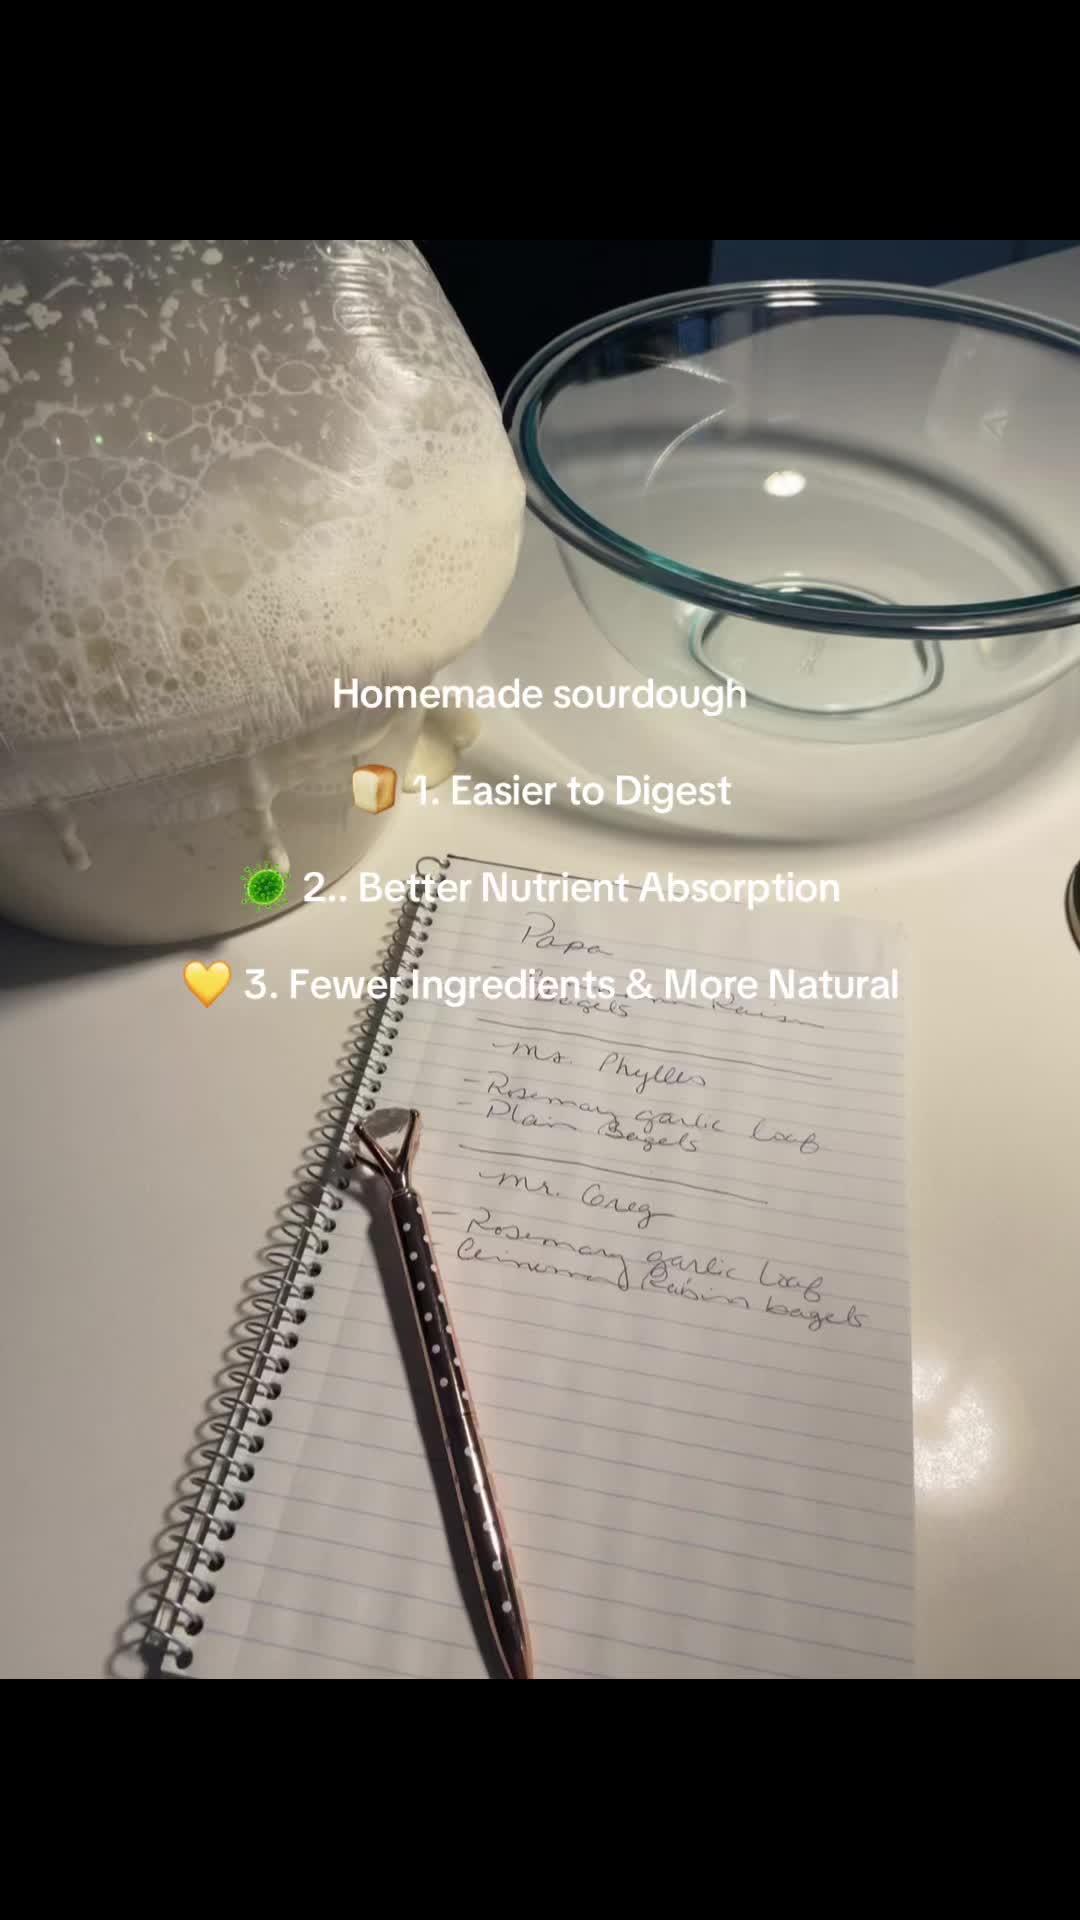 Homemade sourdough
🍞 1. Easier to Digest
🦠 2.. Better Nutrient Absorption
💛 3. Fewer Ingredients & More Natural
Papa
- Raisin
Bagels
Ms. Phylles
- Rosemary garlic loaf
- Plain Bagels
Mr. Greg
- Rosemary garlic loaf
bagels